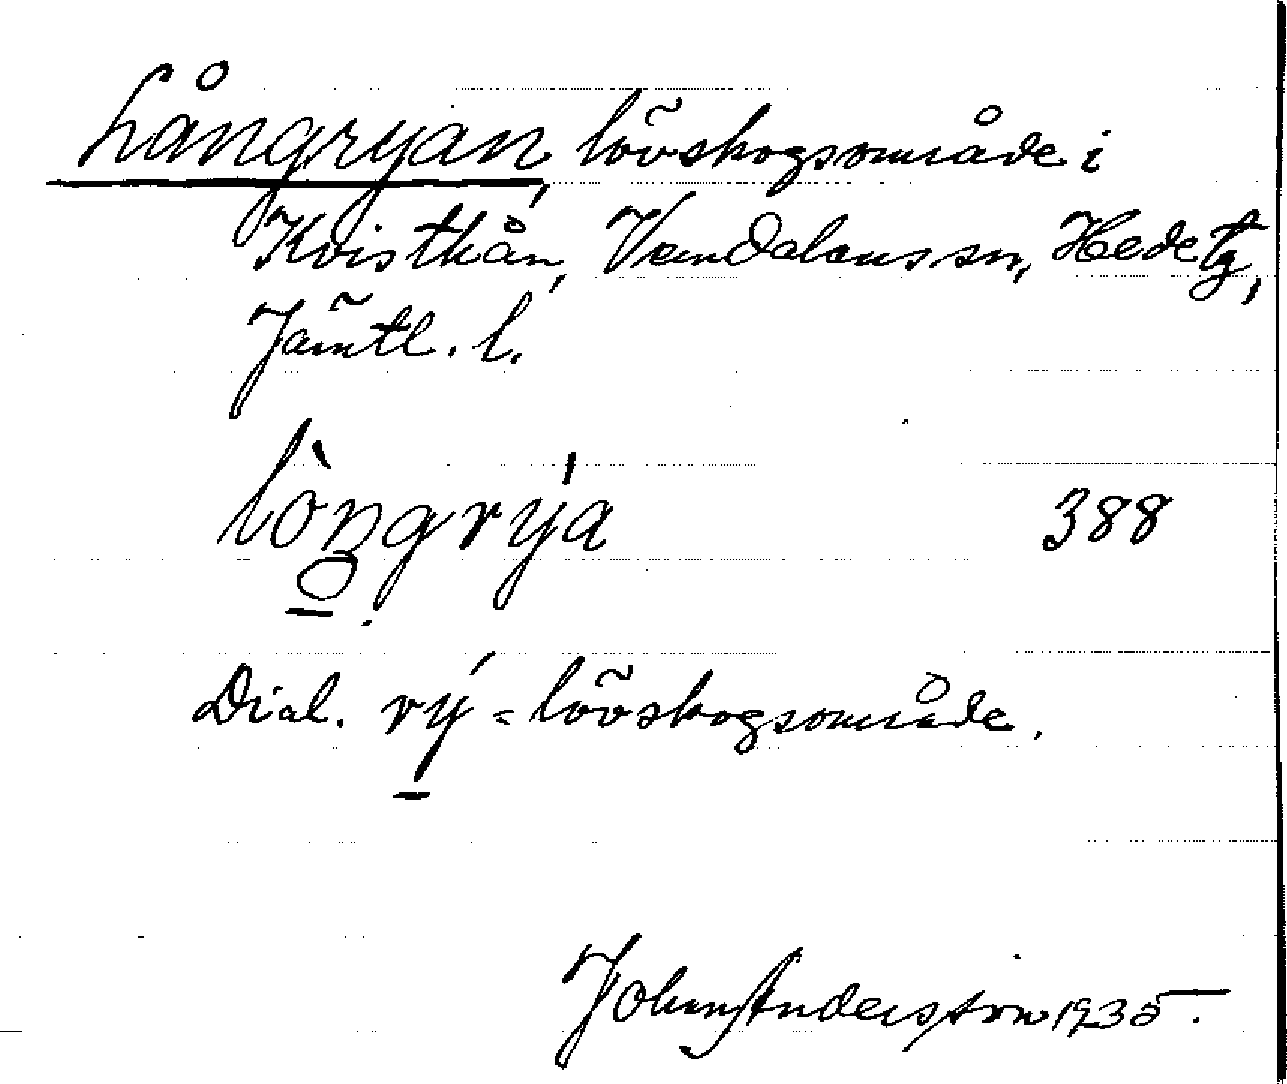 Långryan, lövskogsområde i
Kvistkån, Vemdalens sn, Hede tg,
Jämtl. l.
lòngrýa 388
Dial. rý = lövskogsområde.
Johan Andersson 1935.